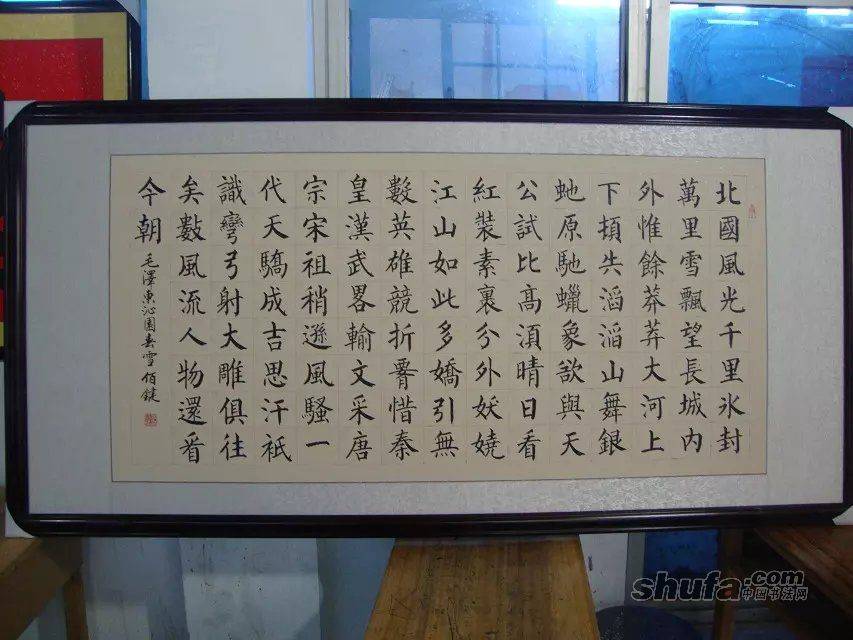 北國風光千里氷封
萬里雪飄望長城内
外惟餘莽莽大河上
下頓失滔滔山舞銀
虵原馳蠟象欲與天
公試比高湏晴日看
紅裝素裹分外妖嬈
江山如此多嬌引無
數英雄競折腰惜秦
皇漢武畧輸文采唐
宗宋祖稍遜風騷一
代天驕成吉思汗衹
識彎弓射大雕俱往
矣數風流人物還看
今朝
毛澤東沁園春雪佰鍵
shufa.com
中国书法网